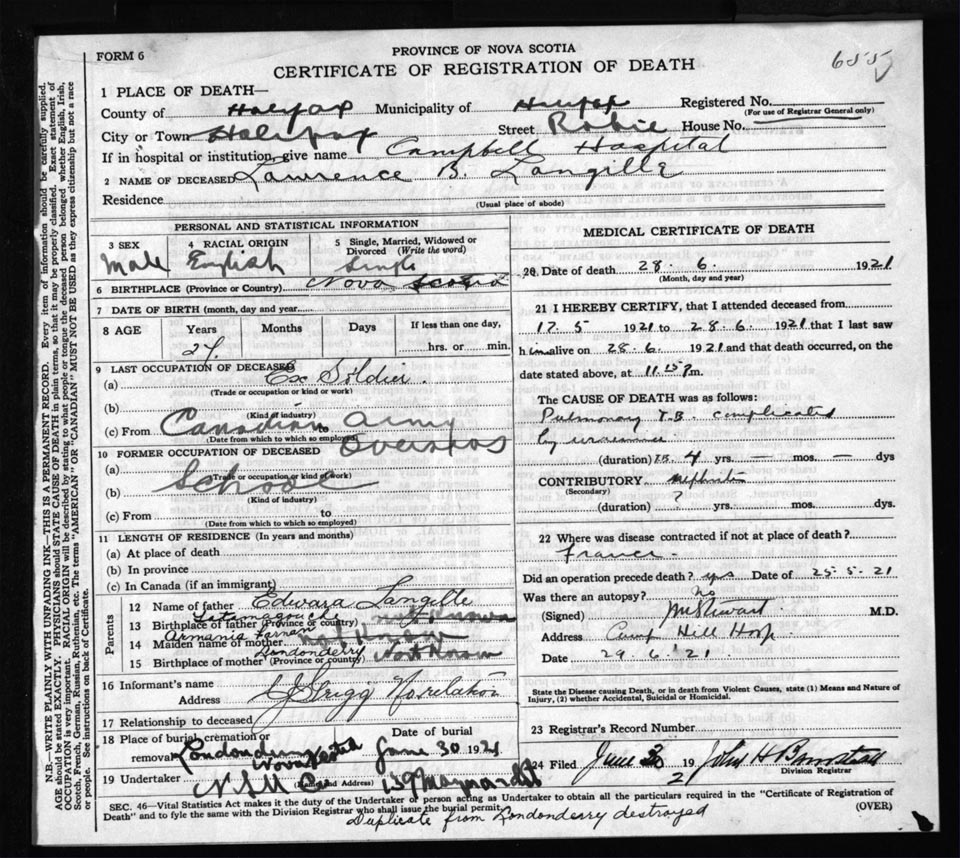 6555
FORM 6
PROVINCE OF NOVA SCOTIA
CERTIFICATE OF REGISTRATION OF DEATH
1 PLACE OF DEATH—
County of Halifax Municipality of Halifax Registered No.
(For use of Registrar General only)
City or Town Halifax Street Robie House No.
If in hospital or institution, give name Campbell Hospital
2 NAME OF DECEASED Lawrence B. Langille
Residence
(Usual place of abode)
PERSONAL AND STATISTICAL INFORMATION
3 SEX 4 RACIAL ORIGIN 5 Single, Married, Widowed or Divorced (Write the word)
Male English Single
6 BIRTHPLACE (Province or Country) Nova Scotia
7 DATE OF BIRTH (month, day and year)
8 AGE Years Months Days If less than one day,
24 hrs. or min.
9 LAST OCCUPATION OF DECEASED
(a) Ex Soldier
(Trade or occupation or kind of work)
(b)
(Kind of industry)
(c) From Canadian to Army
(Date from which to which so employed) Overseas
10 FORMER OCCUPATION OF DECEASED
(a)
(Trade or occupation or kind of work)
(b) School
(Kind of industry)
(c) From to
(Date from which to which so employed)
11 LENGTH OF RESIDENCE (In years and months)
(a) At place of death
(b) In province
(c) In Canada (if an immigrant)
Parents
12 Name of father Edward Langille
13 Birthplace of father (Province or country) Tatamagouche not known
14 Maiden name of mother Armania not know
15 Birthplace of mother (Province or country) Londonderry Not know
16 Informant's name
Address No relation
17 Relationship to deceased
18 Place of burial, cremation or removal Date of burial
Londonderry Nova Scotia June 30 1921
19 Undertaker N.S.U. Co (Address) 139 Maynard St
MEDICAL CERTIFICATE OF DEATH
20. Date of death 28. 6. 1921
(Month, day and year)
21 I HEREBY CERTIFY, that I attended deceased from
17. 5 1921 to 28. 6. 1921 that I last saw
him alive on 28. 6. 1921 and that death occurred, on the
date stated above, at 11.15 P.m.
The CAUSE OF DEATH was as follows:
Pulmonary T.B. complicated
by uraemia
(duration) T.B. 4 yrs. — mos. — dys
CONTRIBUTORY nephritis
(Secondary)
(duration) ? yrs. mos. dys.
22 Where was disease contracted if not at place of death?
France
Did an operation precede death? yes Date of 25-5-21
Was there an autopsy? No
(Signed) Stewart M.D.
Address Camp Hill Hosp.
Date 29. 6. '21
State the Disease causing Death, or in death from Violent Causes, state (1) Means and Nature of
Injury, (2) whether Accidental, Suicidal or Homicidal.
23 Registrar's Record Number
24 Filed June 30 192 John H
Division Registrar
SEC. 46—Vital Statistics Act makes it the duty of the Undertaker or person acting as Undertaker to obtain all the particulars required in the "Certificate of Registration of
Death" and to fyle the same with the Division Registrar who shall issue the burial permit. (OVER)
Duplicate from Londonderry destroyed
N.B.—WRITE PLAINLY WITH UNFADING INK—THIS IS A PERMANENT RECORD. Every item of information should be carefully supplied.
AGE should be stated EXACTLY. PHYSICIANS should STATE CAUSE OF DEATH in plain terms, so that it may be properly classified. Exact statement of
OCCUPATION is very important. RACIAL ORIGIN will be described by stating to what people or tongue the deceased person belonged whether English, Irish,
Scotch, French, German, Russian, Ruthenian, etc. The terms "AMERICAN" OR "CANADIAN" MUST NOT BE USED as they express citizenship but not a race
or people. See instructions on back of Certificate.